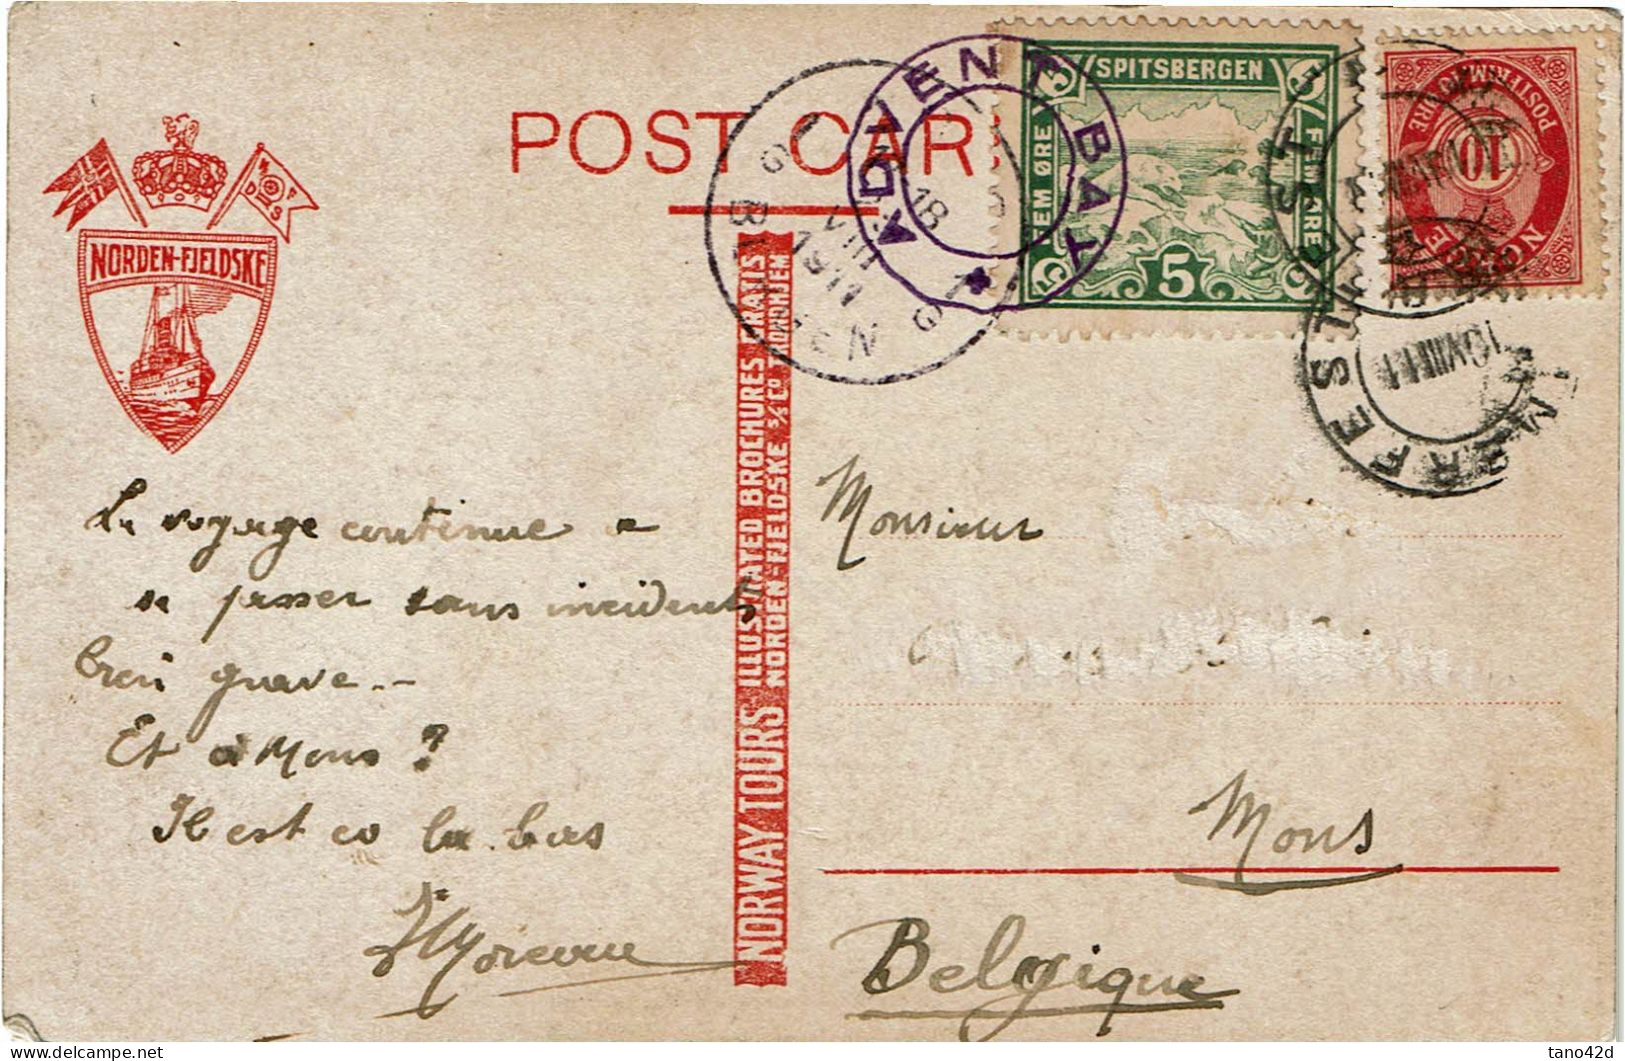 POST CAR
NORDEN-FJELDSKE
N F
D S
ADVENT BAY
SPITSBERGEN
FEM ØRE
5
POSTFRIM
10
NORGE
18 VIII 1911
BERGEN
HAMMERFEST
NORWAY TOURS ILLUSTRATED BROCHURES GRATIS
NORDEN-FJELDSKE S/S CO TRONDHJEM
Le voyage continue a
se passer sans incidents
bien grave.-
Et à Mons ?
Il est là bas
Moreau
Monsieur
Mons
Belgique
delcampe.net
tano42d